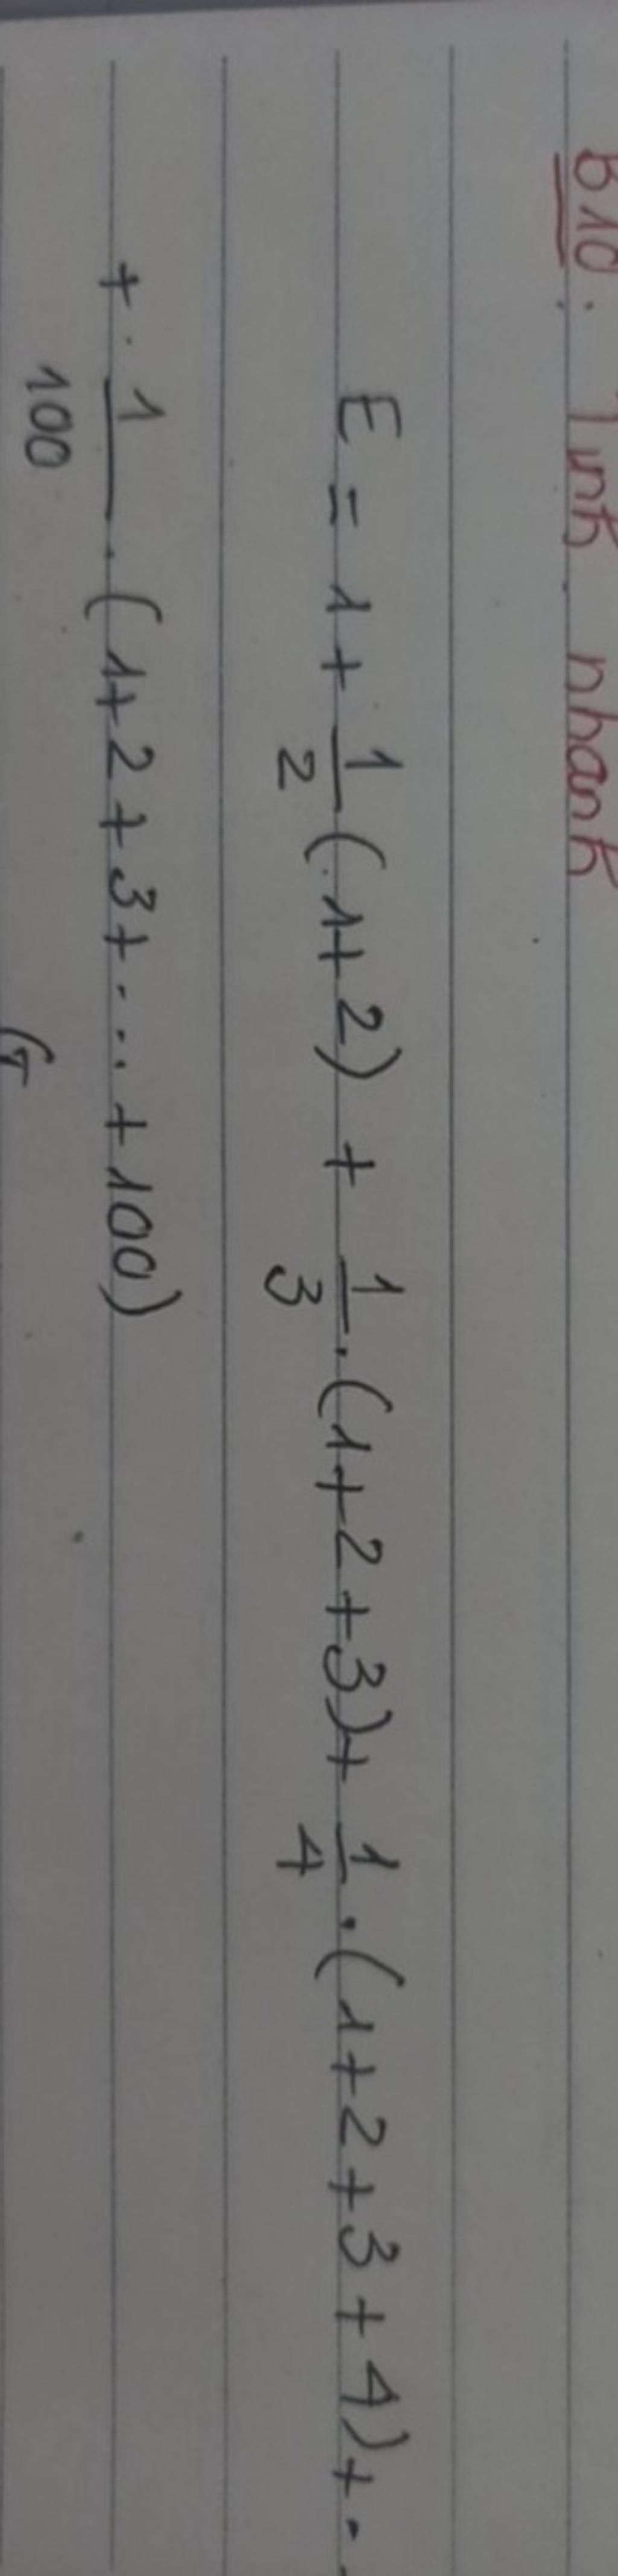 B10. Tính nhanh
E = 1 + 1/2 (1+2) + 1/3 . (1+2+3) + 1/4 . (1+2+3+4) + .
+ 1/100 . (1+2+3+...+100)